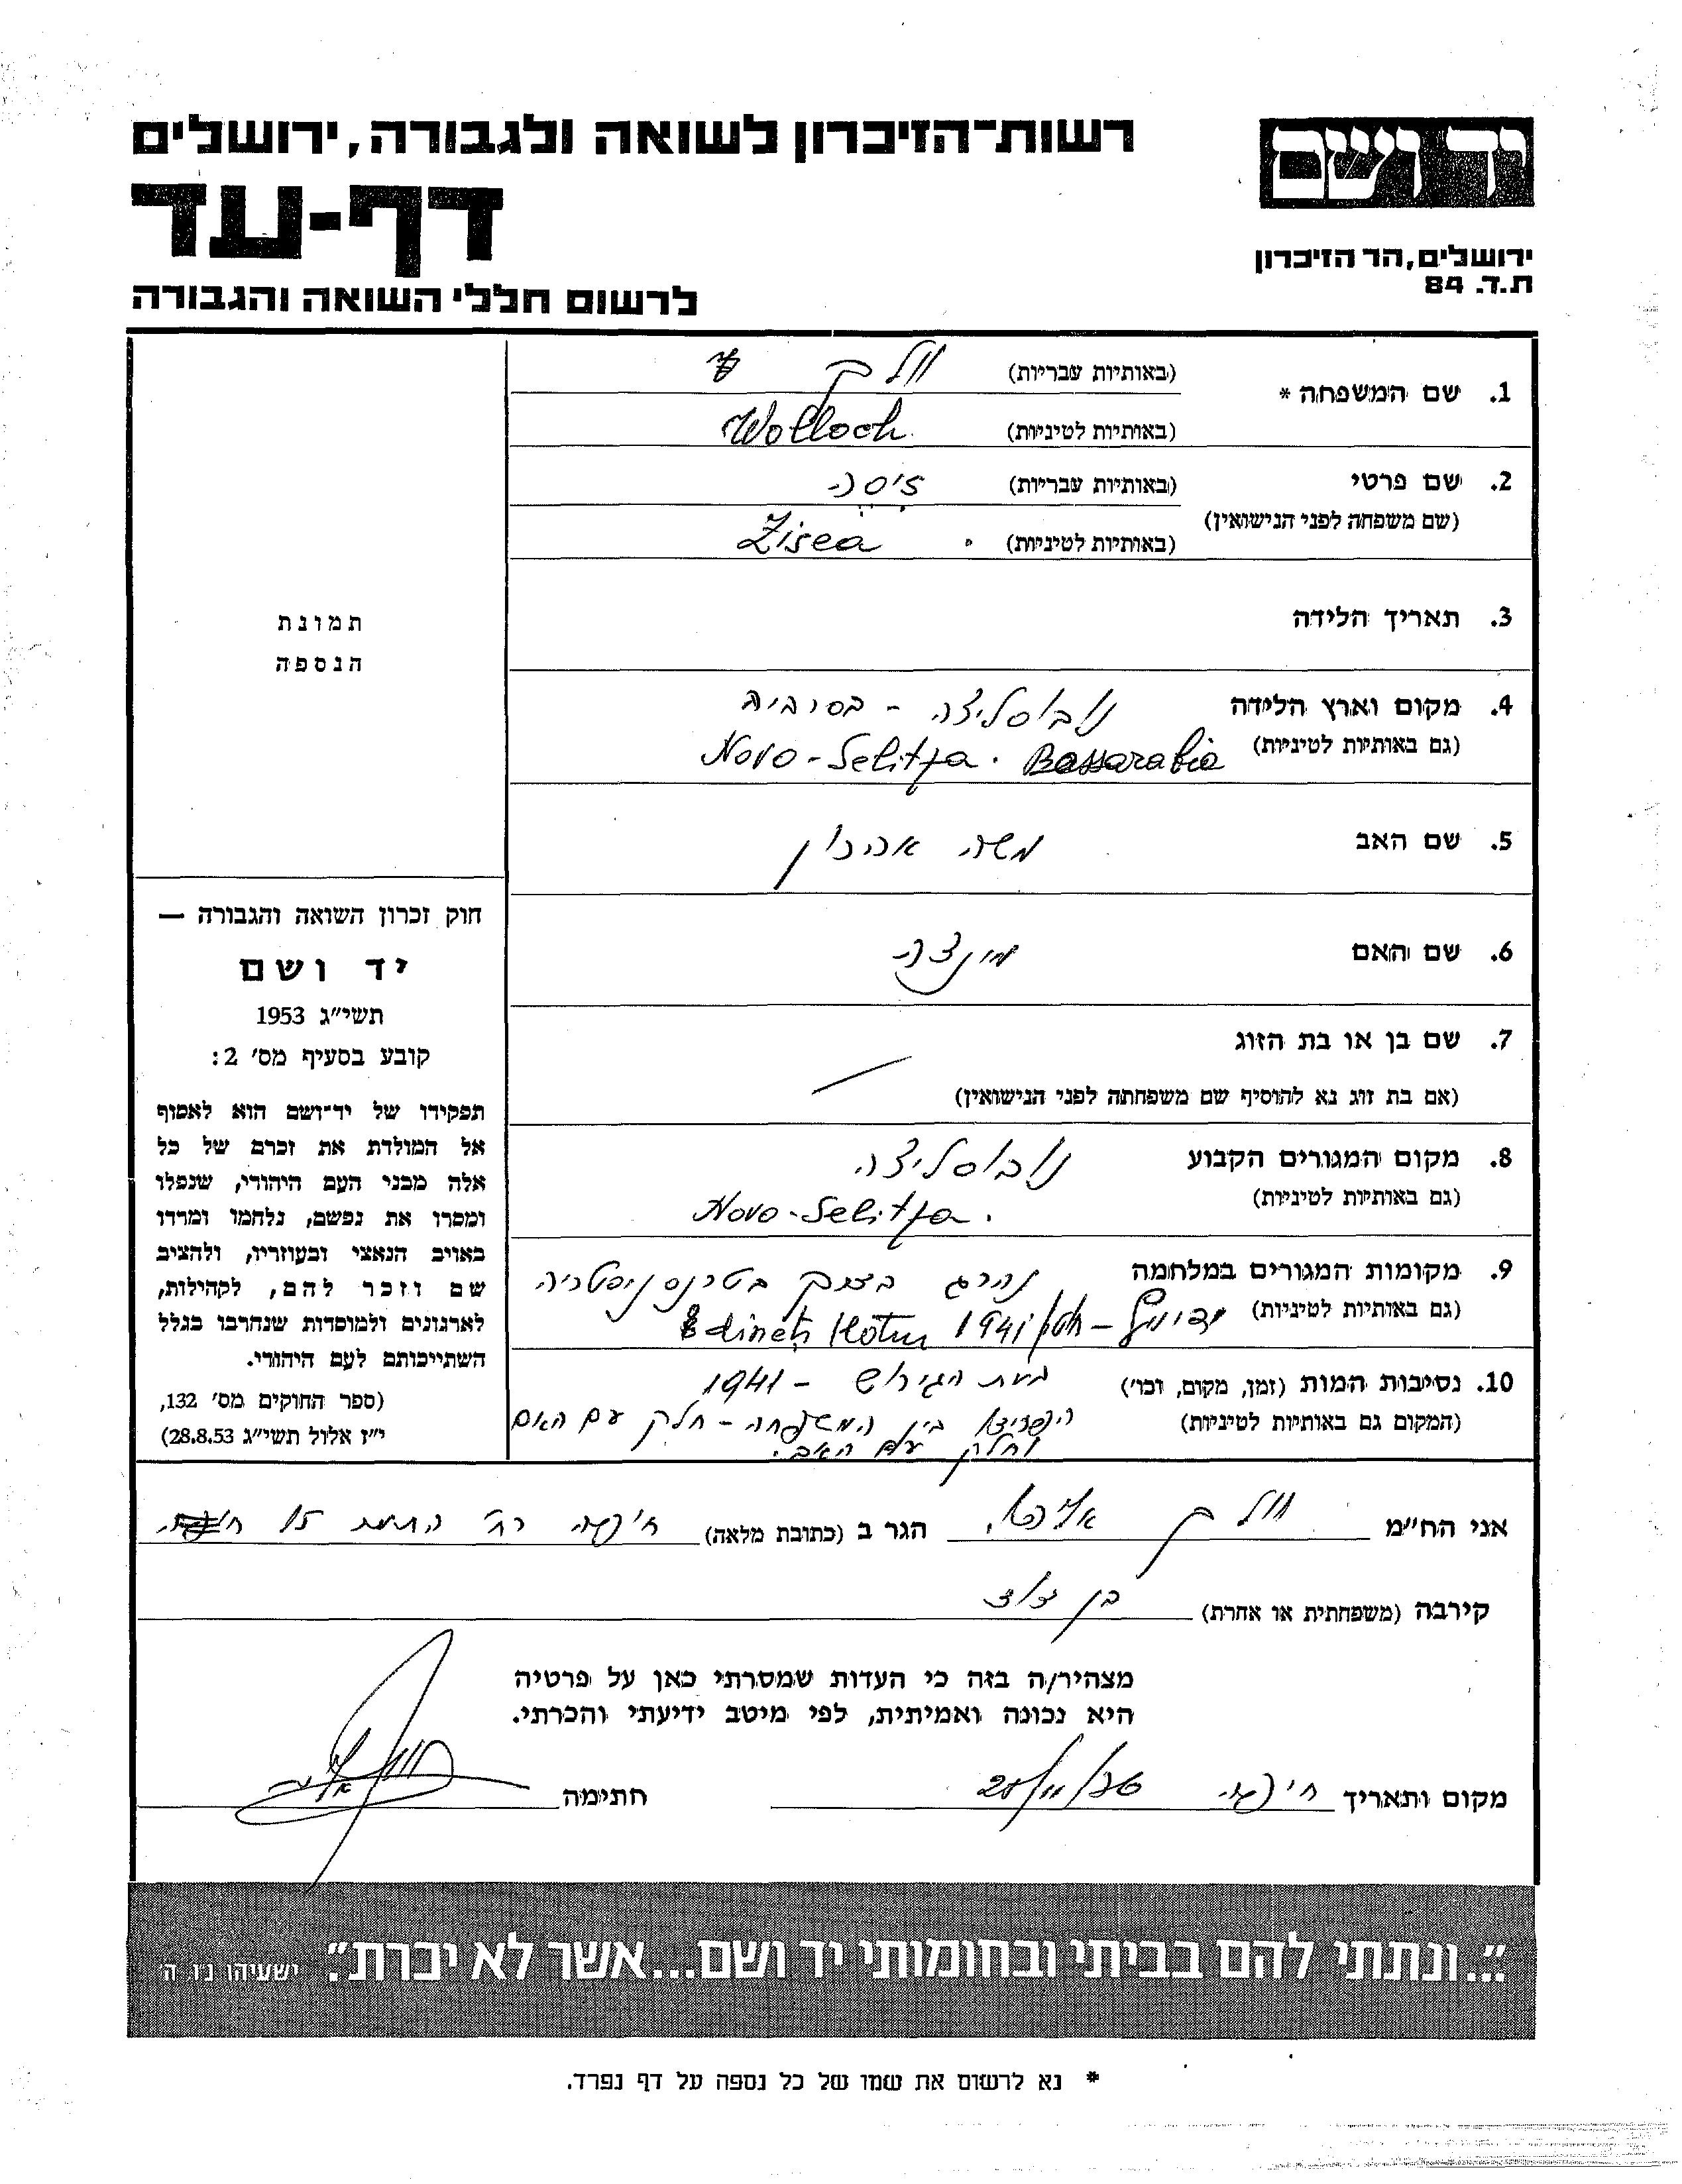 רשות־הזיכרון לשואה ולגבורה, ירושלים
יד ושם
דף-עד
ירושלים, הר הזיכרון
ת.ד. 84
לרשום חללי השואה והגבורה
1. שם המשפחה * (באותיות עבריות) וולך
(באותיות לטיניות) Wolloch
2. שם פרטי (באותיות עבריות) זיסה
(שם משפחה לפני הנישואין)
(באותיות לטיניות) Zisea
3. תאריך הלידה
4. מקום וארץ הלידה נובוסליצה - בסרביה
(גם באותיות לטיניות) Novo-Selitza. Bassarabia
5. שם האב משה אהרון
6. שם האם
7. שם בן או בת הזוג
(אם בת זוג נא להוסיף שם משפחתה לפני הנישואין)
8. מקום המגורים הקבוע נובוסליצה
(גם באותיות לטיניות) Novo-Selitza.
9. מקומות המגורים במלחמה נהרג בטרנסניסטריה
(גם באותיות לטיניות) 1941 Edinets Hotin
10. נסיבות המות (זמן, מקום, וכו') בעת הגירוש - 1941
(המקום גם באותיות לטיניות) הפרידו בין המשפחה - חלק עם האם
וחלק עם האב.
תמונת
הנספה
חוק זכרון השואה והגבורה —
יד ושם
תשי״ג 1953
קובע בסעיף מס׳ 2:
תפקידו של יד־ושם הוא לאסוף
אל המולדת את זכרם של כל
אלה מבני העם היהודי, שנפלו
ומסרו את נפשם, נלחמו ומרדו
באויב הנאצי ובעוזריו, ולהציב
שם וזכר להם, לקהילות,
לארגונים ולמוסדות שנחרבו בגלל
השתייכותם לעם היהודי.
(ספר החוקים מס׳ 132,
י״ז אלול תשי״ג 28.8.53)
אני הח״מ וולך הגר ב (כתובת מלאה) חיפה רח׳ 15
קירבה (משפחתית או אחרת) בן דוד
מצהיר/ה בזה כי העדות שמסרתי כאן על פרטיה
היא נכונה ואמיתית, לפי מיטב ידיעתי והכרתי.
מקום ותאריך חיפה חתימה
"...ונתתי להם בביתי ובחומותי יד ושם...אשר לא יכרת". ישעיהו נ״ו, ה׳
* נא לרשום את שמו של כל נספה על דף נפרד.